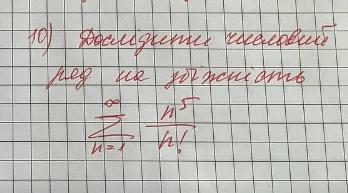 10) Дослідити числовий
ряд на збіжність
∞
∑ n⁵/n!
n=1